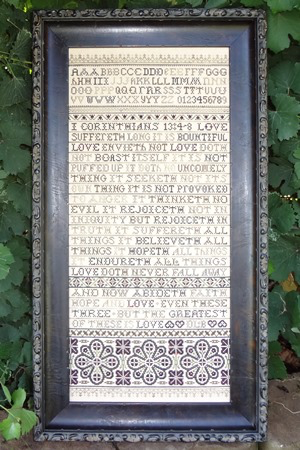 AAABBBCCCDDDEEEFFFGGG
1 CORINTHIANS 13:4-8 LOVE
SUFFERETH LONG IT IS BOUNTIFUL
LOVE ENVIETH NOT LOVE DOTH
NOT BOAST ITSELF IT IS NOT
PUFFED UP IT DOTH UNCOMELY
THING IT SEEKETH NOT
OUR THING IT IS NOT PROVOKED
TO ANGER IT THINKETH NO
EVIL IT REJOICETH NOT IN
INIQUITY BUT REJOICETH IN
TRUTH IT SUFFERETH ALL
THINGS IT BELIEVETH ALL
THINGS IT HOPETH ALL THINGS
ENDURETH ALL THINGS
LOVE DOTH NEVER FALL AWAY
AND NOW ABIDETH FAITH
HOPE AND LOVE EVEN THESE
THREE BUT THE GREATEST
OF THESE IS LOVE